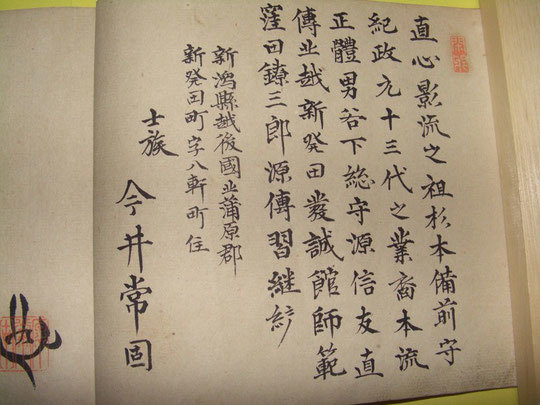 直心影流之祖杉本備前守
紀政元十三代之業裔本流
正體男谷下総守源信友直
傳北越新発田發誠館師範
窪田鐐三郎源傳習継
新潟縣越後國北蒲原郡
新発田町字八軒町住
士族
今井常固